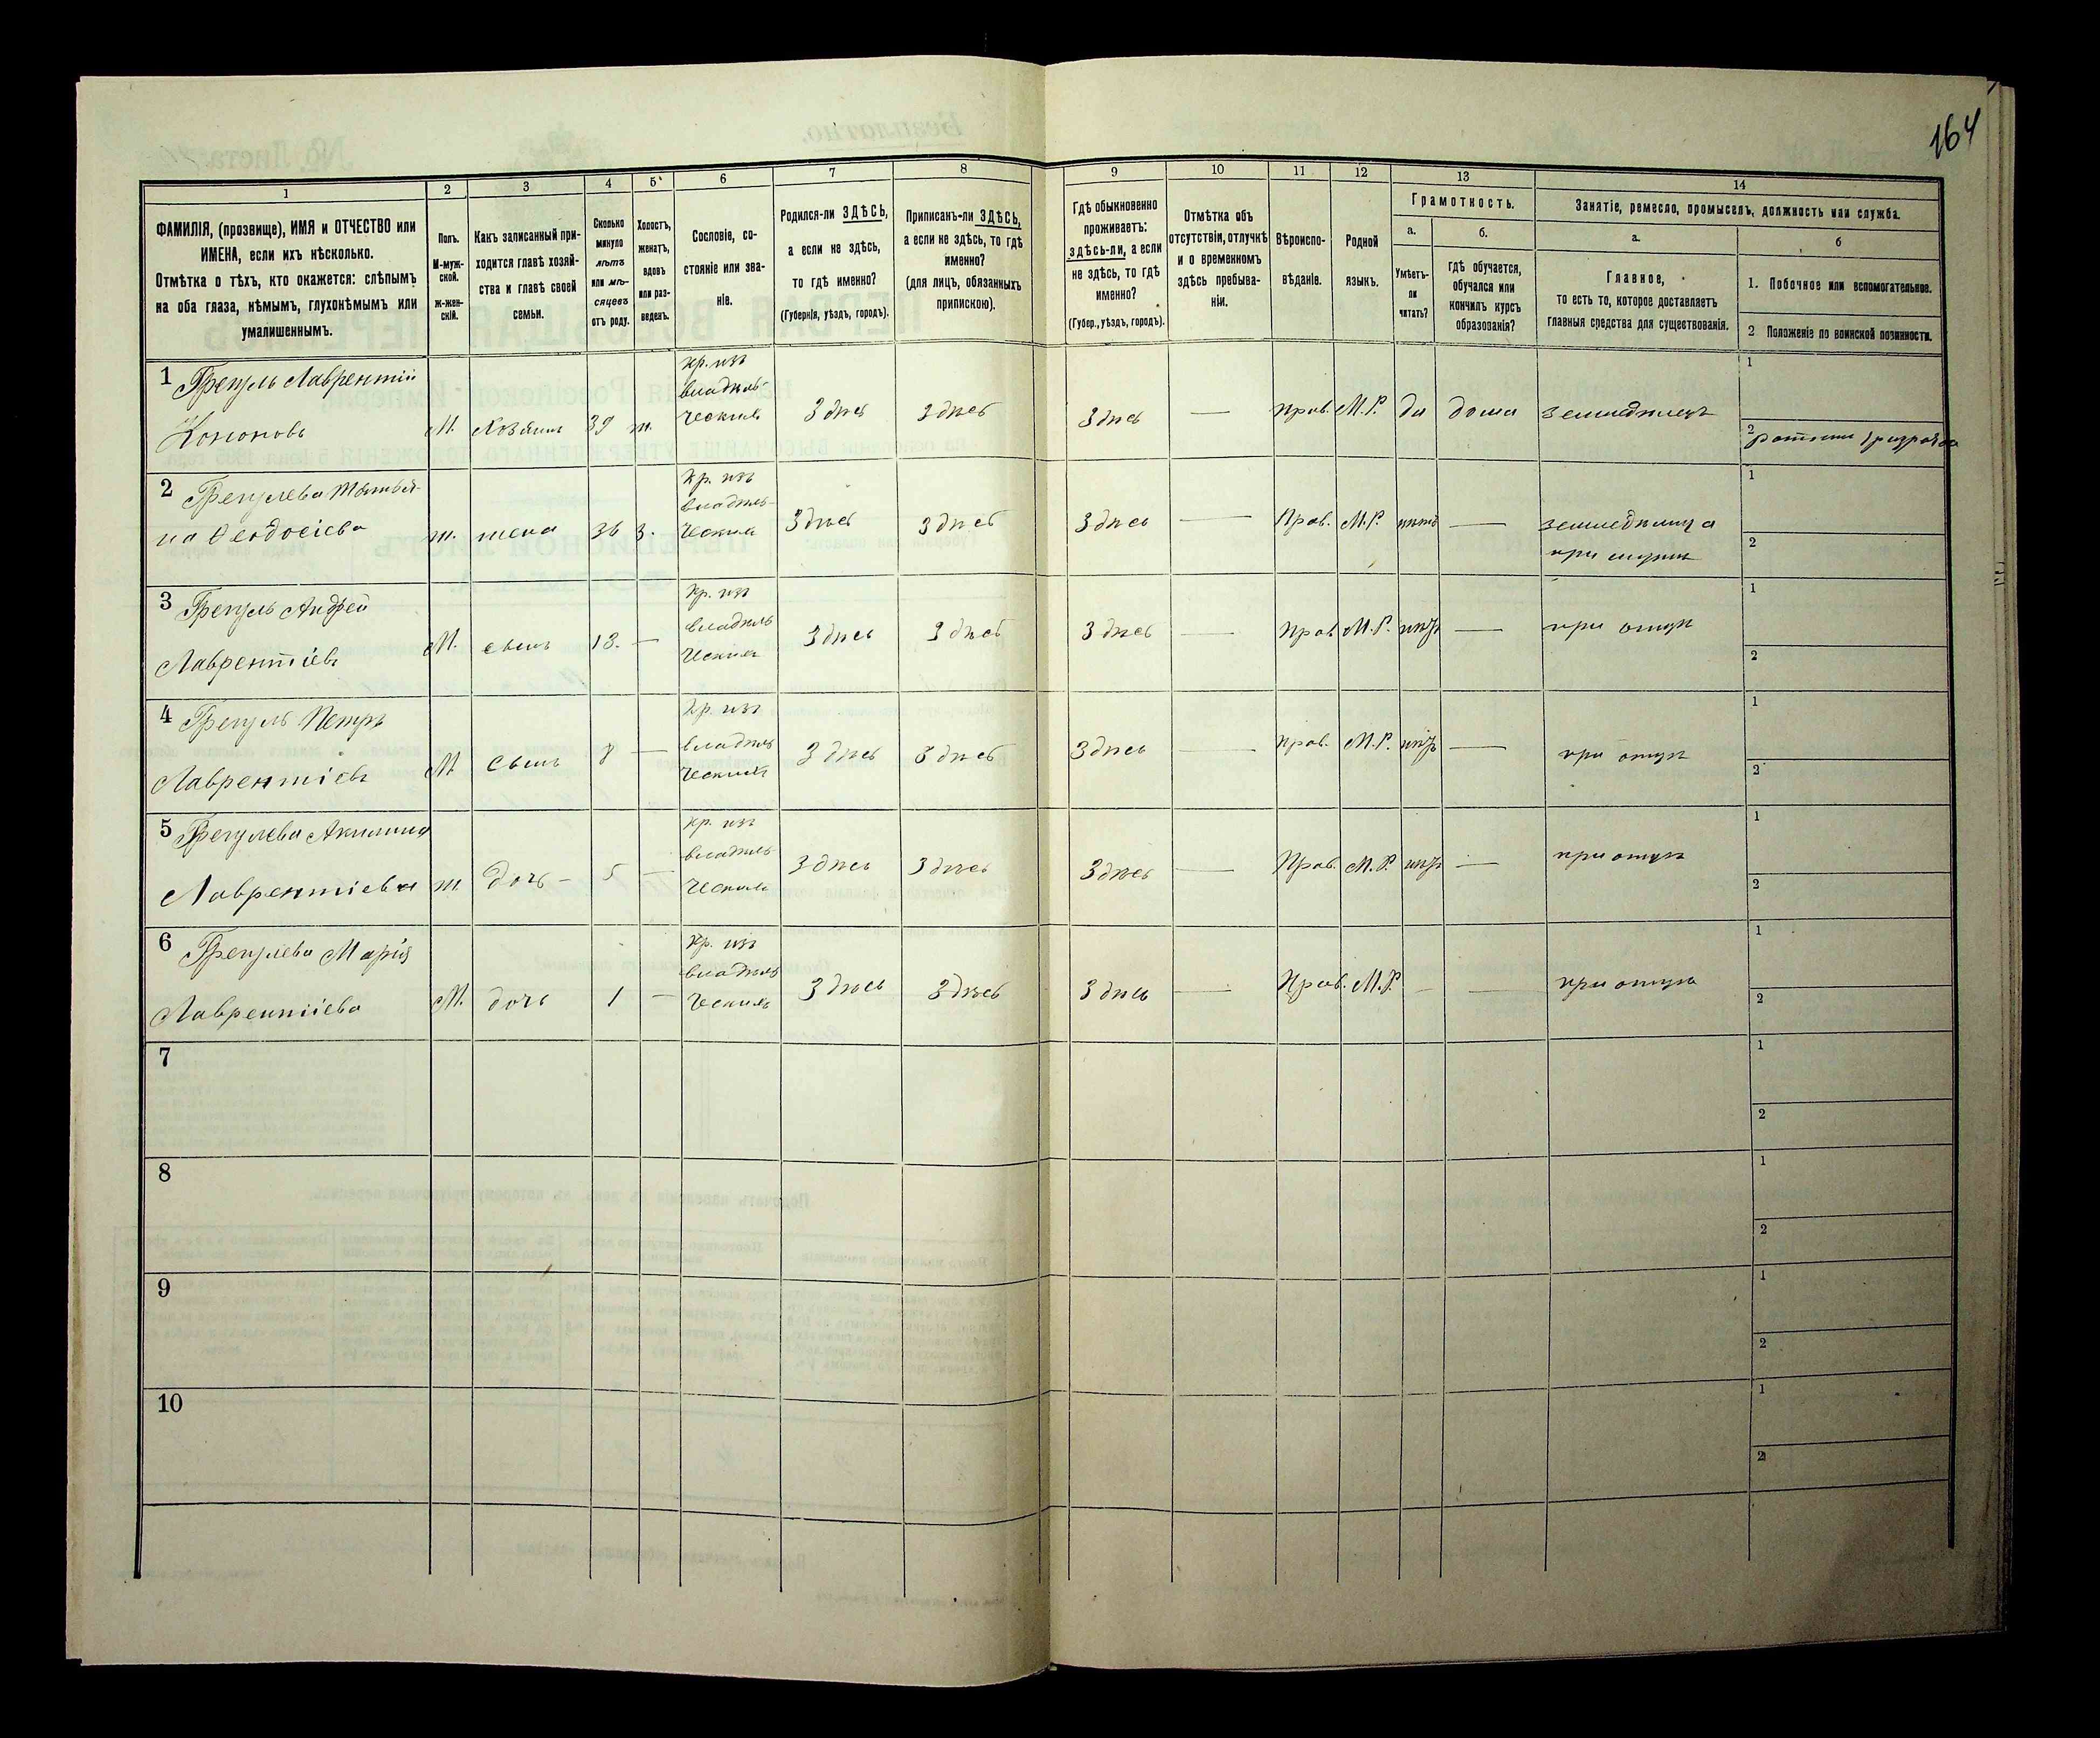 164
1 2 3 4 5 6 7 8 9 10 11 12 13 14
ФАМИЛІЯ, (прозвище), ИМЯ и ОТЧЕСТВО или
ИМЕНА, если ихъ нѣсколько.
Отмѣтка о тѣхъ, кто окажется: слѣпымъ
на оба глаза, нѣмымъ, глухонѣмымъ или
умалишеннымъ.
Полъ.
М-муж-
ской.
Ж-жен-
скій.
Какъ записанный при-
ходится главѣ хозяй-
ства и главѣ своей
семьи.
Сколько
минуло
лѣтъ
или мѣ-
сяцевъ
отъ роду.
Холостъ,
женатъ,
вдовъ
или раз-
веденъ.
Сословіе, со-
стояніе или зва-
ніе.
Родился-ли ЗДѢСЬ,
а если не здѣсь,
то гдѣ именно?
(Губернія, уѣздъ, городъ).
Приписанъ-ли ЗДѢСЬ,
а если не здѣсь, то гдѣ
именно?
(для лицъ, обязанныхъ
припискою).
Гдѣ обыкновенно
проживаетъ:
здѣсь-ли, а если
не здѣсь, то гдѣ
именно?
(Губер., уѣздъ, городъ).
Отмѣтка объ
отсутствіи, отлучкѣ
и о временномъ
здѣсь пребыва-
ніи.
Вѣроиспо-
вѣданіе.
Родной
языкъ.
Грамотность.
а.
Умѣетъ-
ли
читать?
б.
гдѣ обучается,
обучался или
кончилъ курсъ
образованія?
Занятіе, ремесло, промыселъ, должность или служба.
а.
Главное,
то есть то, которое доставляетъ
главныя средства для существованія.
б
1. Побочное или вспомогательное.
2 Положеніе по воинской повинности.
1 Грегуль Лаврентій
Кононовъ
М. Хозяинъ 39 ж.
кр. изъ
владѣль-
ческихъ
Здѣсь Здѣсь Здѣсь — прав. М.Р. да дома земледѣлецъ
1
2 Ратникъ 1 разряда
2 Грегулева
на Феодосіева
ж. жена 36 З.
кр. изъ
владѣль-
ческихъ
Здѣсь Здѣсь Здѣсь — Прав. М.Р. нѣтъ — земледѣлица
при мужѣ
1
2
3 Грегуль Андрей
Лаврентіевъ
М. сынъ 13. —
кр. изъ
владѣль
ческихъ
Здѣсь Здѣсь Здѣсь — Прав М.Р. нѣтъ — при отцѣ
1
2
4 Грегуль Петръ
Лаврентіевъ
М Сынъ 8 —
кр. изъ
владѣль
ческихъ
Здѣсь Здѣсь Здѣсь — прав. М.Р. нѣтъ — при отцѣ
1
2
5 Грегулева Акилина
Лаврентіева
ж дочь – 5 —
кр. изъ
владѣль-
ческихъ
Здѣсь Здѣсь Здѣсь — Прав. М.Р. нѣтъ — при отцѣ
1
2
6 Грегулева Марія
Лаврентіева
М. дочь 1 —
кр. изъ
владѣль
ческихъ
Здѣсь Здѣсь Здѣсь — Прав. М.Р. – — при отцѣ
1
2
7
1
2
8
1
2
9
1
2
10
1
2